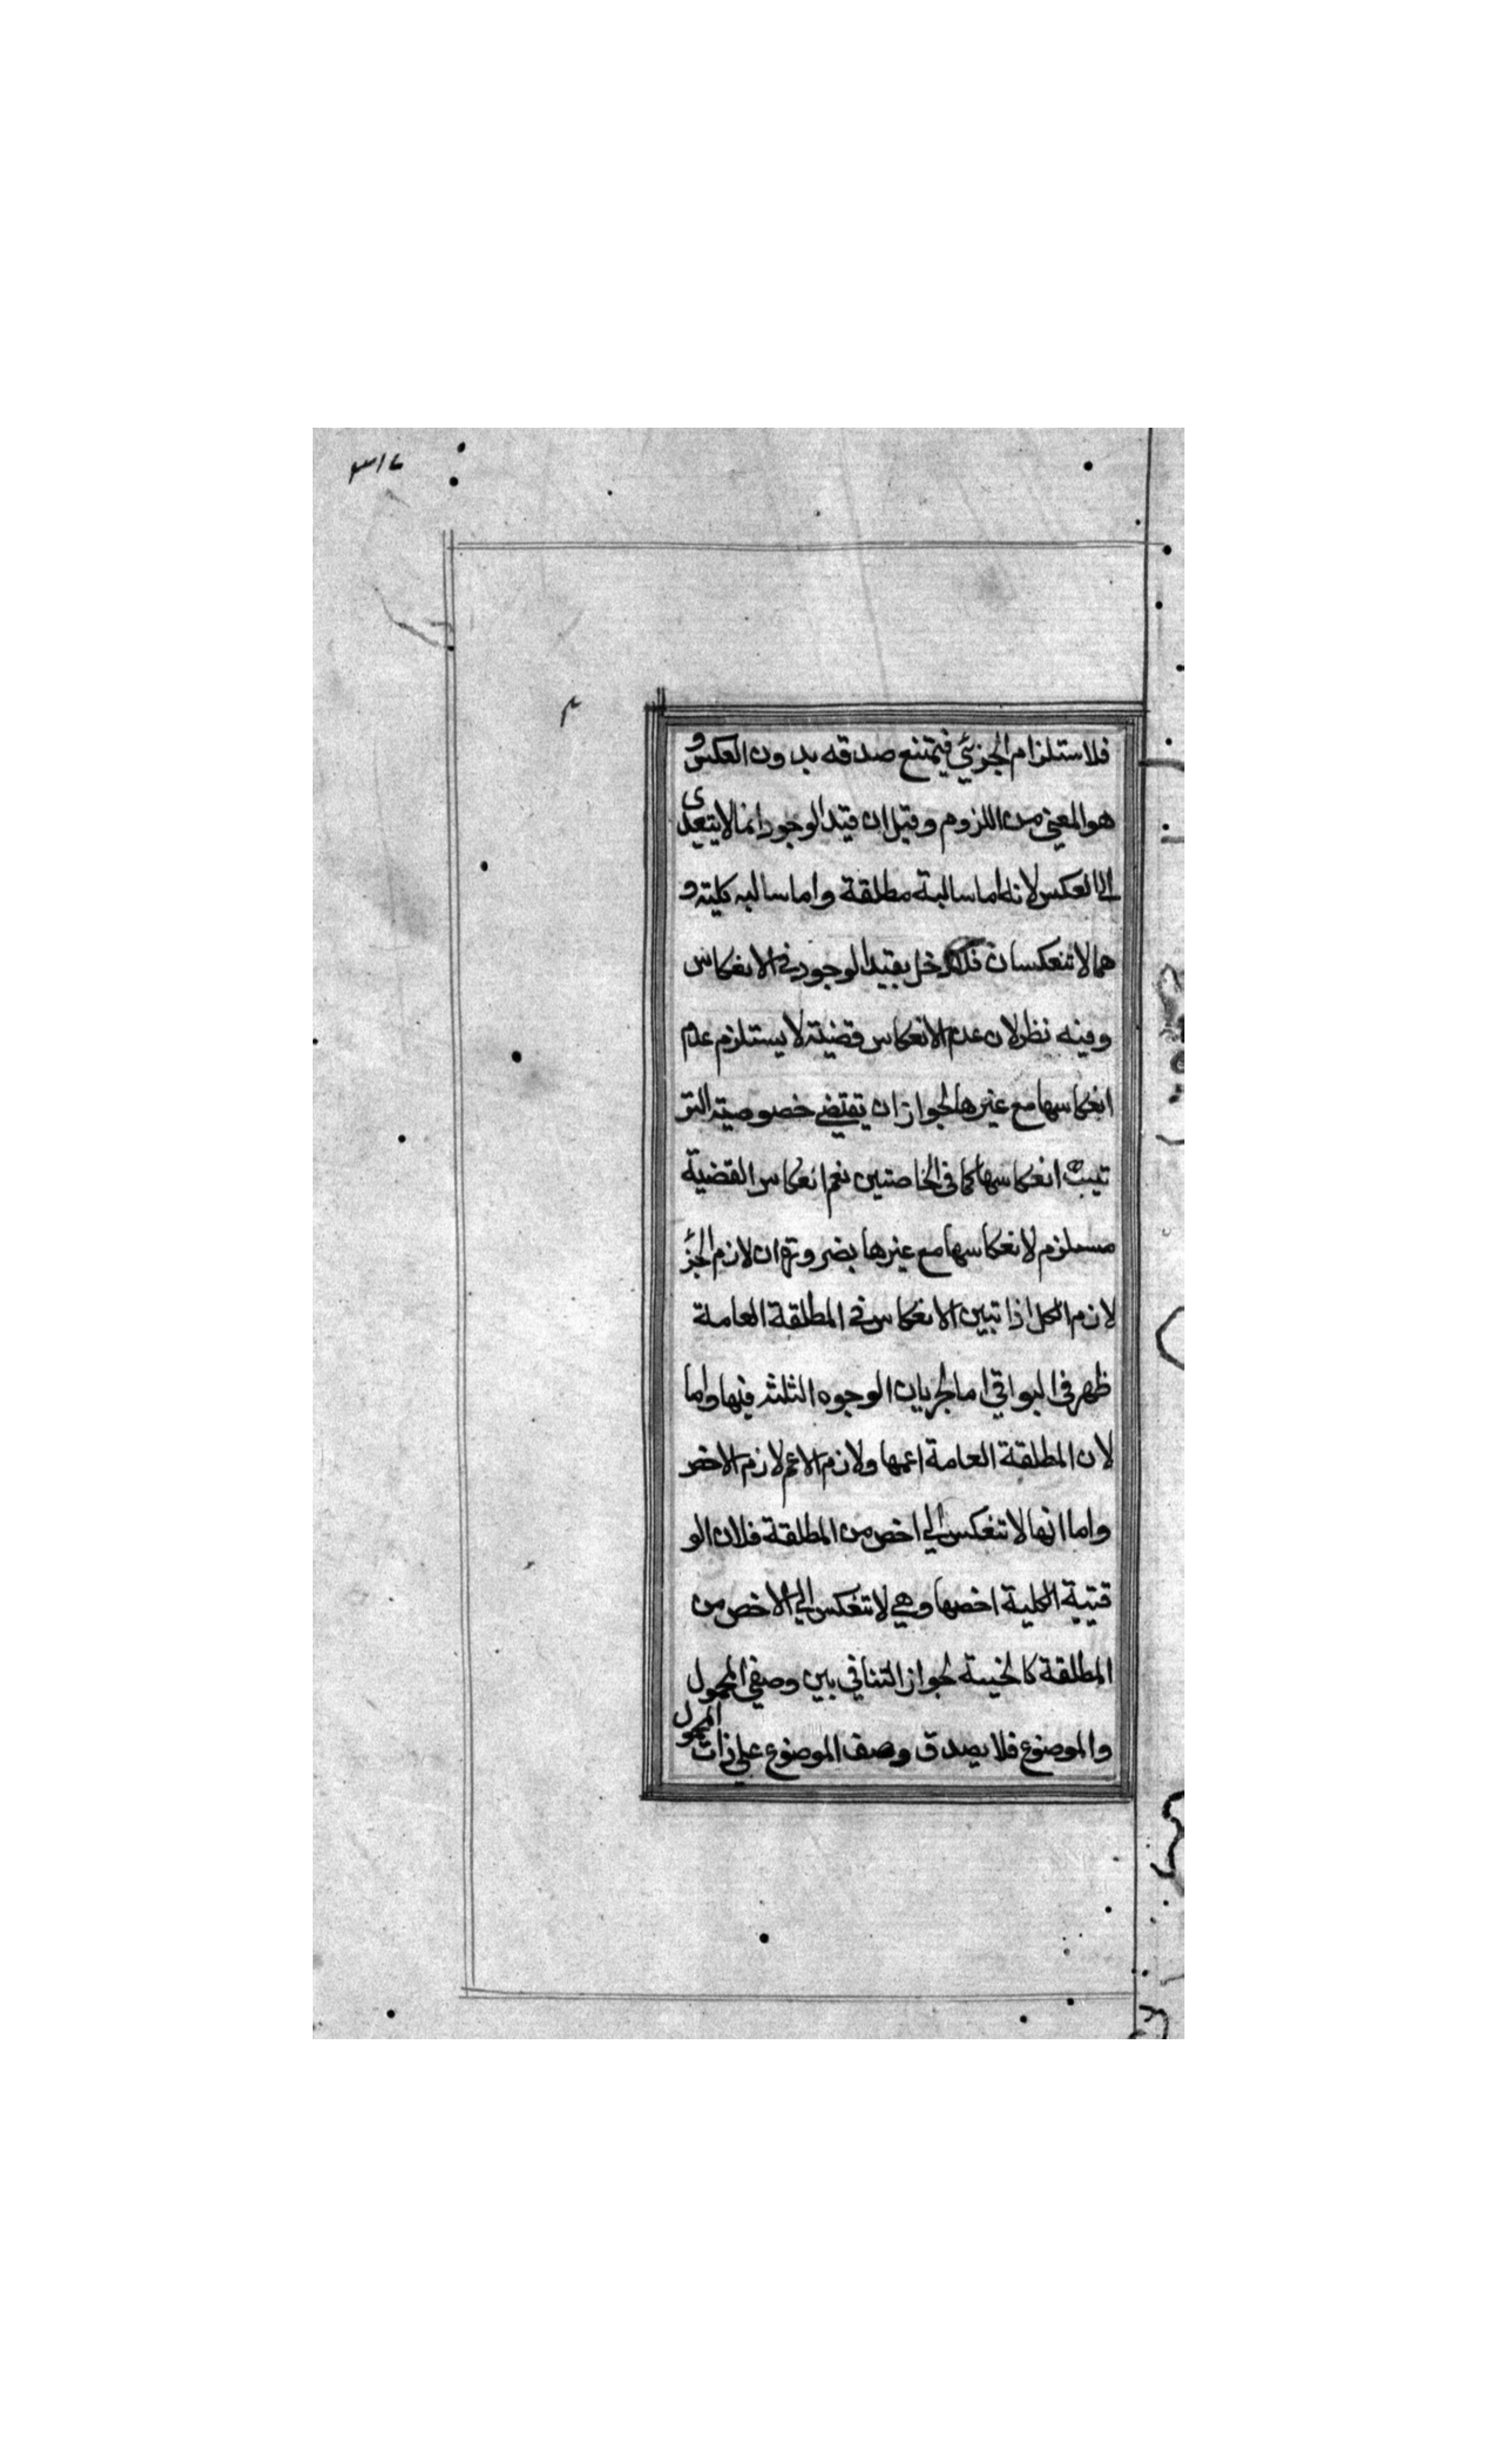 فلاستلزام الجزئي فيمتنع صدقه بدون العكس و
هو المعنى من اللزوم وقيل ان قيد الوجود انما لا يتعدى
الى العكس لانه اما سالبة مطلقة واما سالبه كليته و
هما لا تنعكسان فلا دخل بقيد الوجود في الانعكاس
وفيه نظر لان عدم الانعكاس قضية لا يستلزم عدم
انعكاسها مع غيرها لجواز ان يقتضي خصوصية التر
تيب انعكاسها كما في الخاصتين نعم انعكاس القضية
مستلزم لانعكاسها مع غيرها بضرورة ان لازم الجزء
لازم الكل اذا تبين الانعكاس في المطلقة العامة
ظهر في البواقي اما لجريان الوجوه الثلثه فيها واما
لان المطلقة العامة اعمها ولازم الاعم لازم الاخص
واما انها لا تنعكس الي اخص من المطلقة فلان الو
قتية الكلية اخصها وهي لا تنعكس الي الاخص من
المطلقة كالحينية لجواز التنافي بين وصفي المحمول
والموضوع فلا يصدق وصف الموضوع علي ذات المحمول